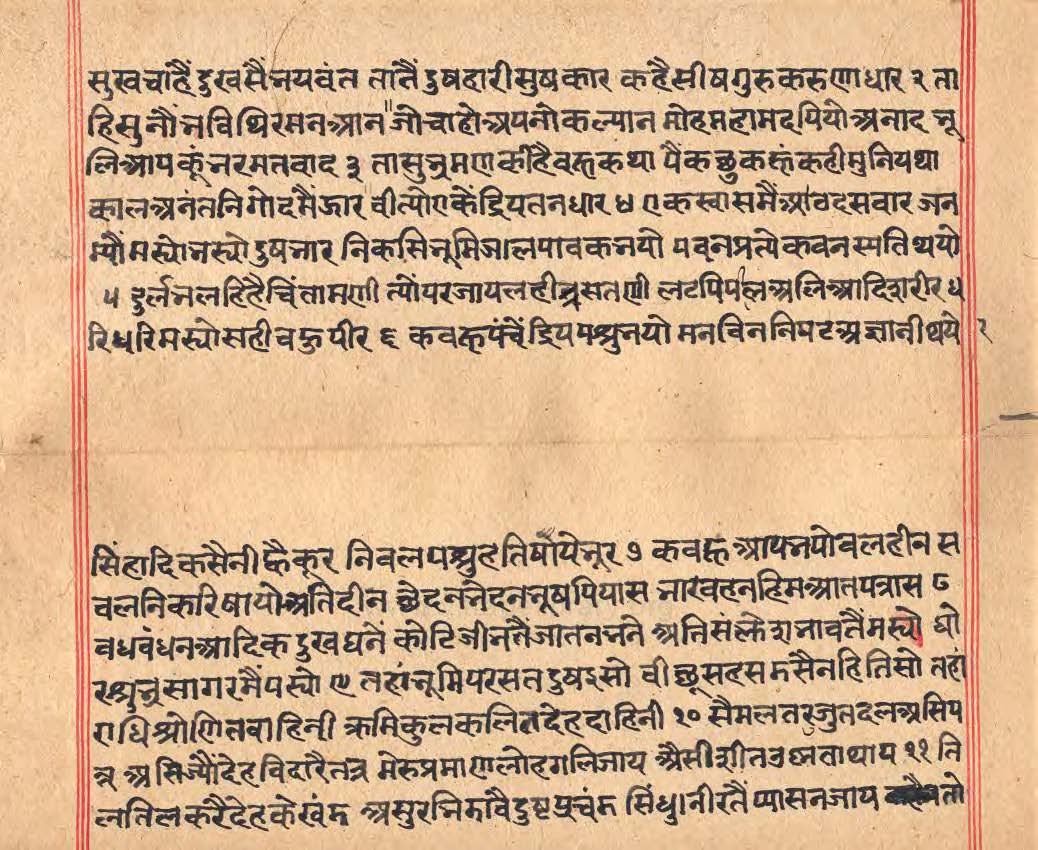 सुखचाहैंदुखसैंभयवंत तातैंदुषहारीसुषकार कहैसीषगुरुकरुणाधार २ ता
हिसुनौंभविथिरमनआन जोचाहोअपनोकल्यान मोहमहामदपियोअनाद भू
लिआपकूंभरमतवाद ३ तासुभ्रमणकीहैबहुकथा पैंकछुकहूंकहीमुनियथा
कालअनंतनिगोदमैंझार बीत्योएकेंद्रियतनधार ४ एकस्वासमैंआठदसवार जन
म्यौंमस्योभस्योदुषभार निकसिभूमिजलपावकभयो पवनप्रत्येकवनस्पतिथयो
५ दुर्लभलहिहैचिंतामणी त्योंपरजायलहीत्रसतणी लटपिपीलअलिआदिशरीर ध
रिधरिमस्योसहीबहुपीर ६ कबहूपंचेंद्रियपशुभयो मनविननिपटअज्ञानीथयो
सिंहादिकसैनीह्वैकूर निबलपशुहतिषायेभूर ७ कबहूंआपभयोबलहीन स
बलनिकरिषायोअतिदीन छेदनभेदनभूषपियास भारवहनहिमआतपत्रास ८
वधबंधनआदिकदुखघनें कोटिजीभतैंजातनभनें अतिसंक्लेशभावतैंमस्यो घो
रश्वभ्रसागरमैंपस्यो ९ तहांभूमिपरसतदुषइसो बीछूसहसडसैनहितिसो तहां
राधिश्रोणितवाहिनी क्रमिकुलकलितदेहदाहिनी १० सैमलतरुजुतदलअसिप
त्र असिज्यौंदेहविदारैतत्र मेरुप्रमाणलोहगलिजाय अैसीशीतउश्नताथाय ११ ति
लतिलकरैदेहकेखंड असुरभिडावैदुष्टप्रचंड सिंधुनीरतैंप्यासनजाय तो